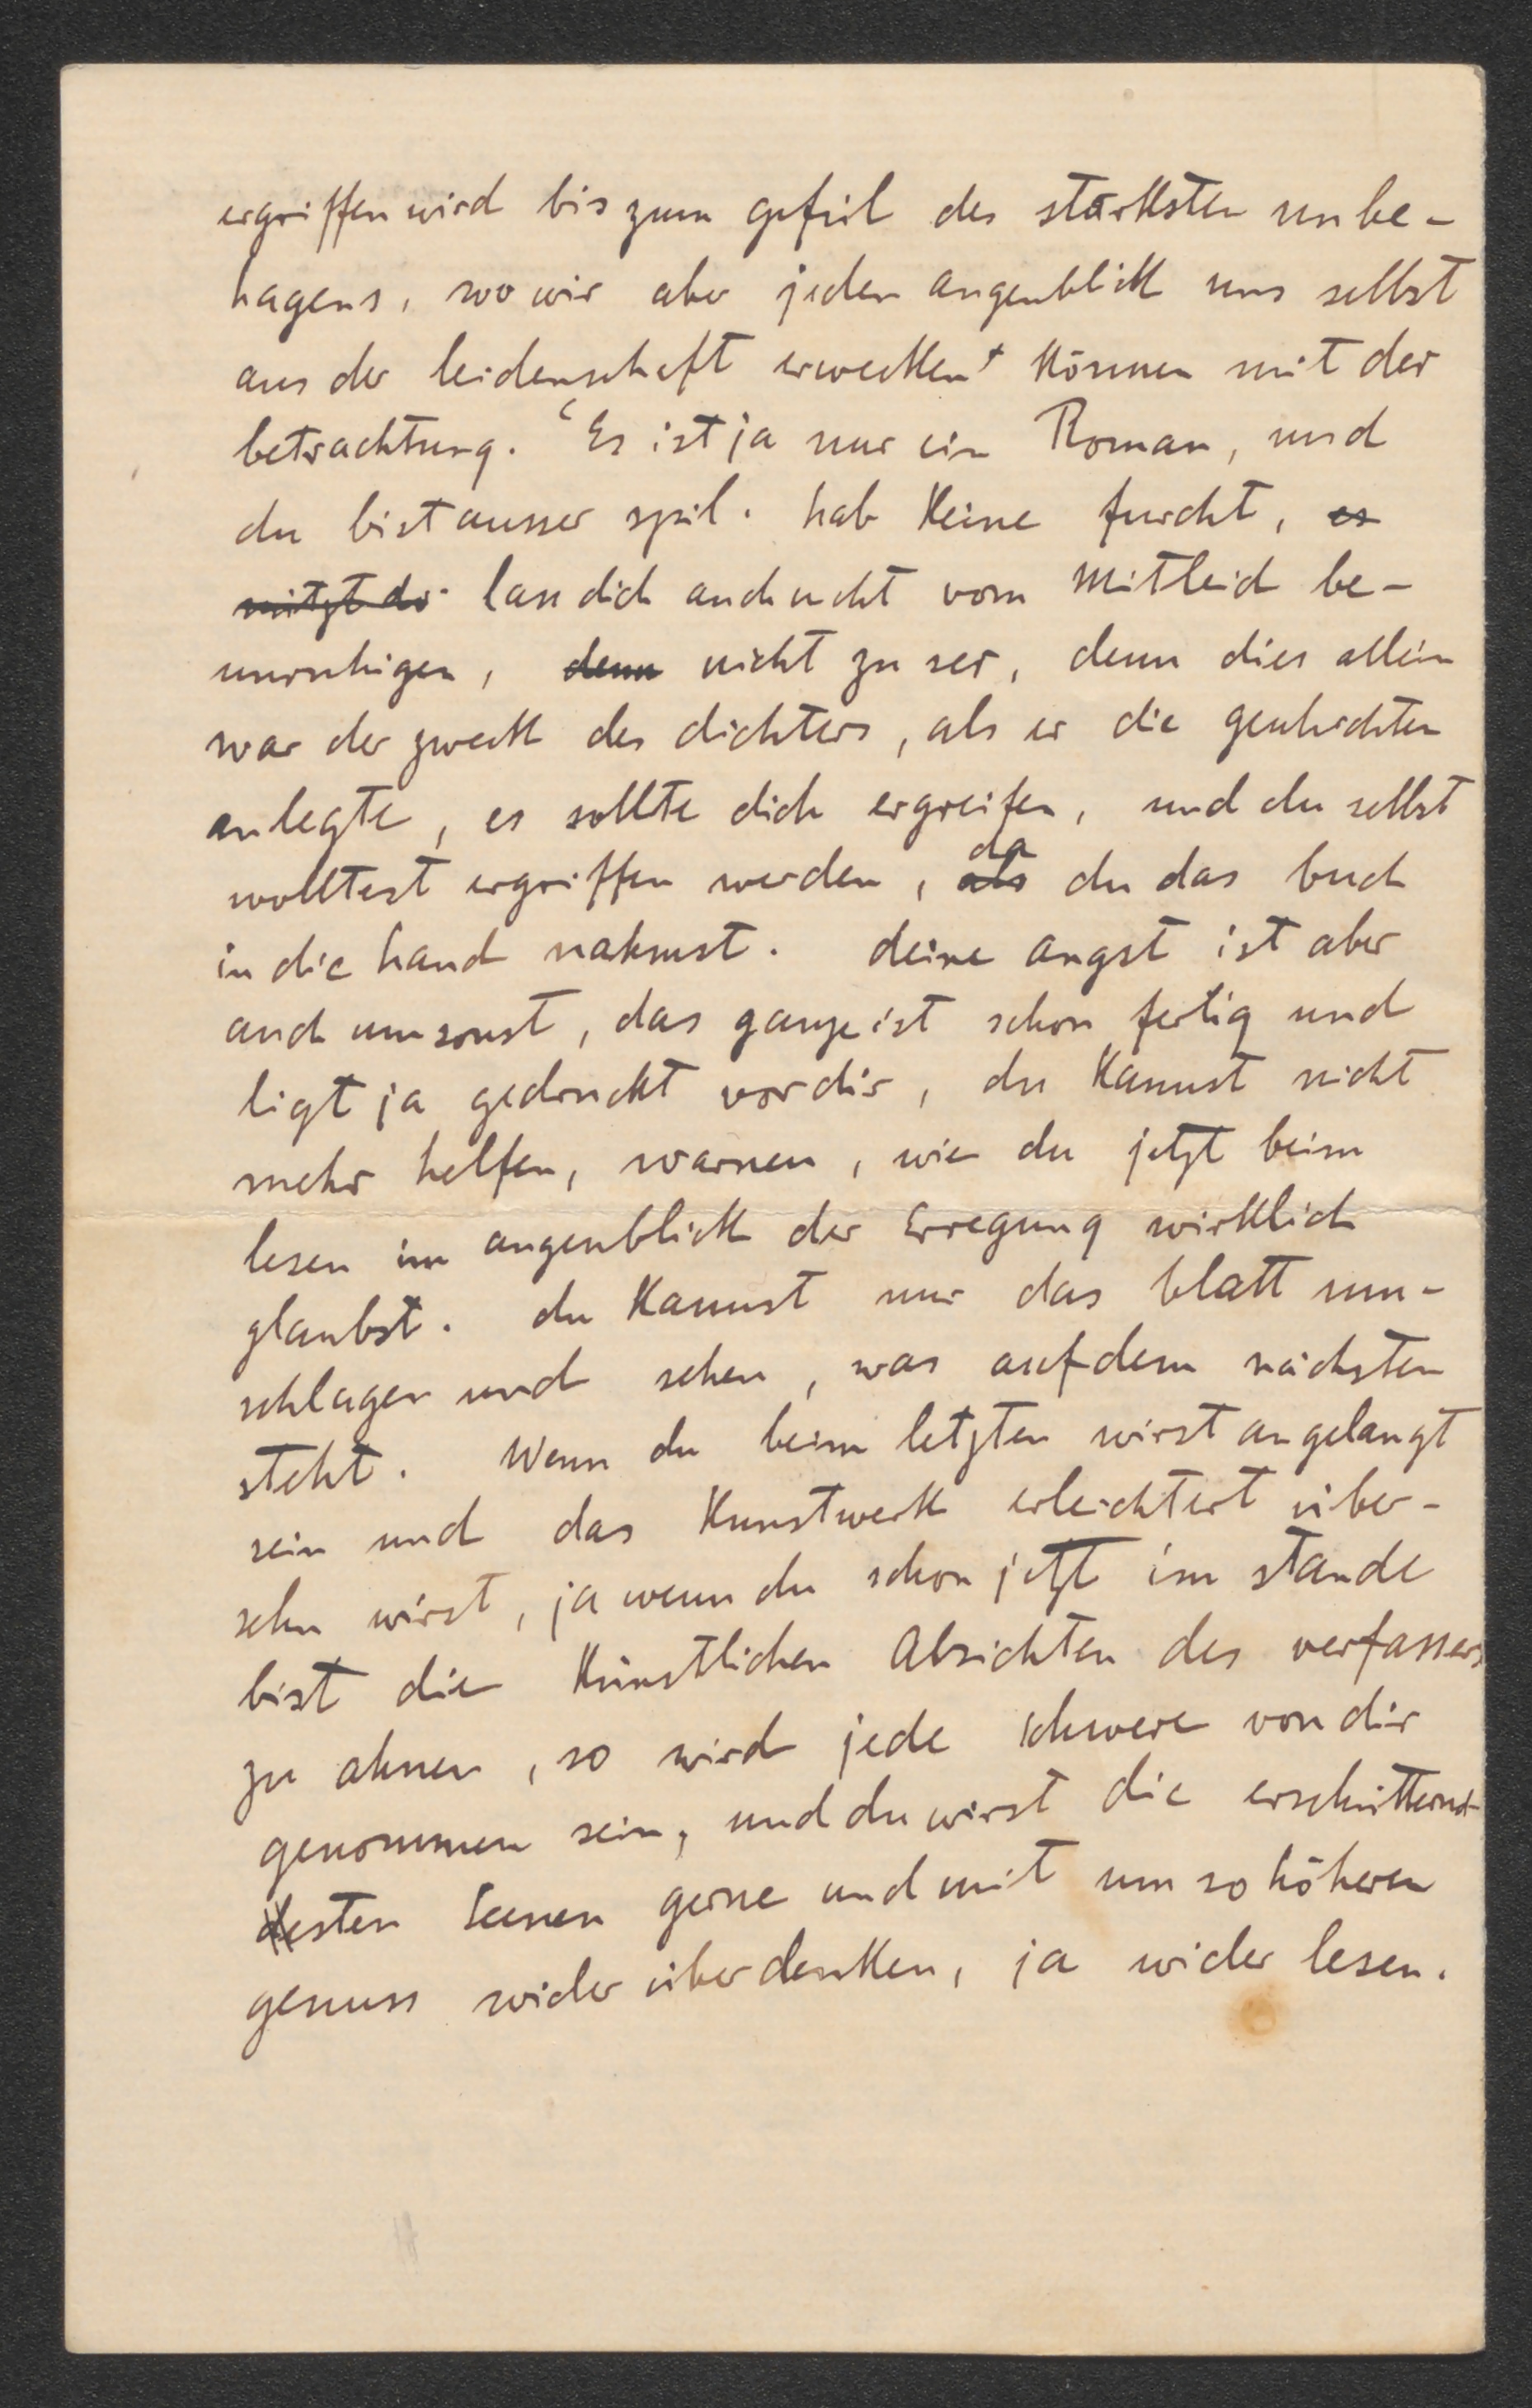 ergriffen wird bis zum gefül des starksten unbe-
hagens, wo wir aber jeden augenblikk uns selbst
aus der leidenschaft erwekken können mit der
betrachtung. "Es ist ja nur ein Roman, und
du bist ausser spil. hab keine furcht, es
nützt dir lass dich auch nicht vom Mitleid be-
unruhigen, denn nicht zu ser, denn dies allein
war der zwekk des dichters, als er die geschichten
anlegte, es sollte dich ergreifen, und du selbst
wolltest ergriffen werden, als da du das buch
in die hand nahmst. deine angst ist aber
auch umsonst, das ganze ist schon fertig und
ligt ja gedruckt vor dir, du kannst nicht
mehr helfen, warnen, wie du jetzt beim
lesen im augenblikk der Erregung wirklich
glaubst. du kannst nur das blatt um-
schlagen und sehen, was auf dem nächsten
steht. Wenn du beim letzten wirst angelangt
sein und das Kunstwerk erleichtert über-
sehn wirst, ja wenn du schon jetzt im stande
bist die künstlichen Absichten des verfassers
zu ahnen, so wird jede schwere von dir
genommen sein, und du wirst die erschütternd-
esten Scenen gerne und mit um so höheren
genuss wider überdenken, ja wider lesen.